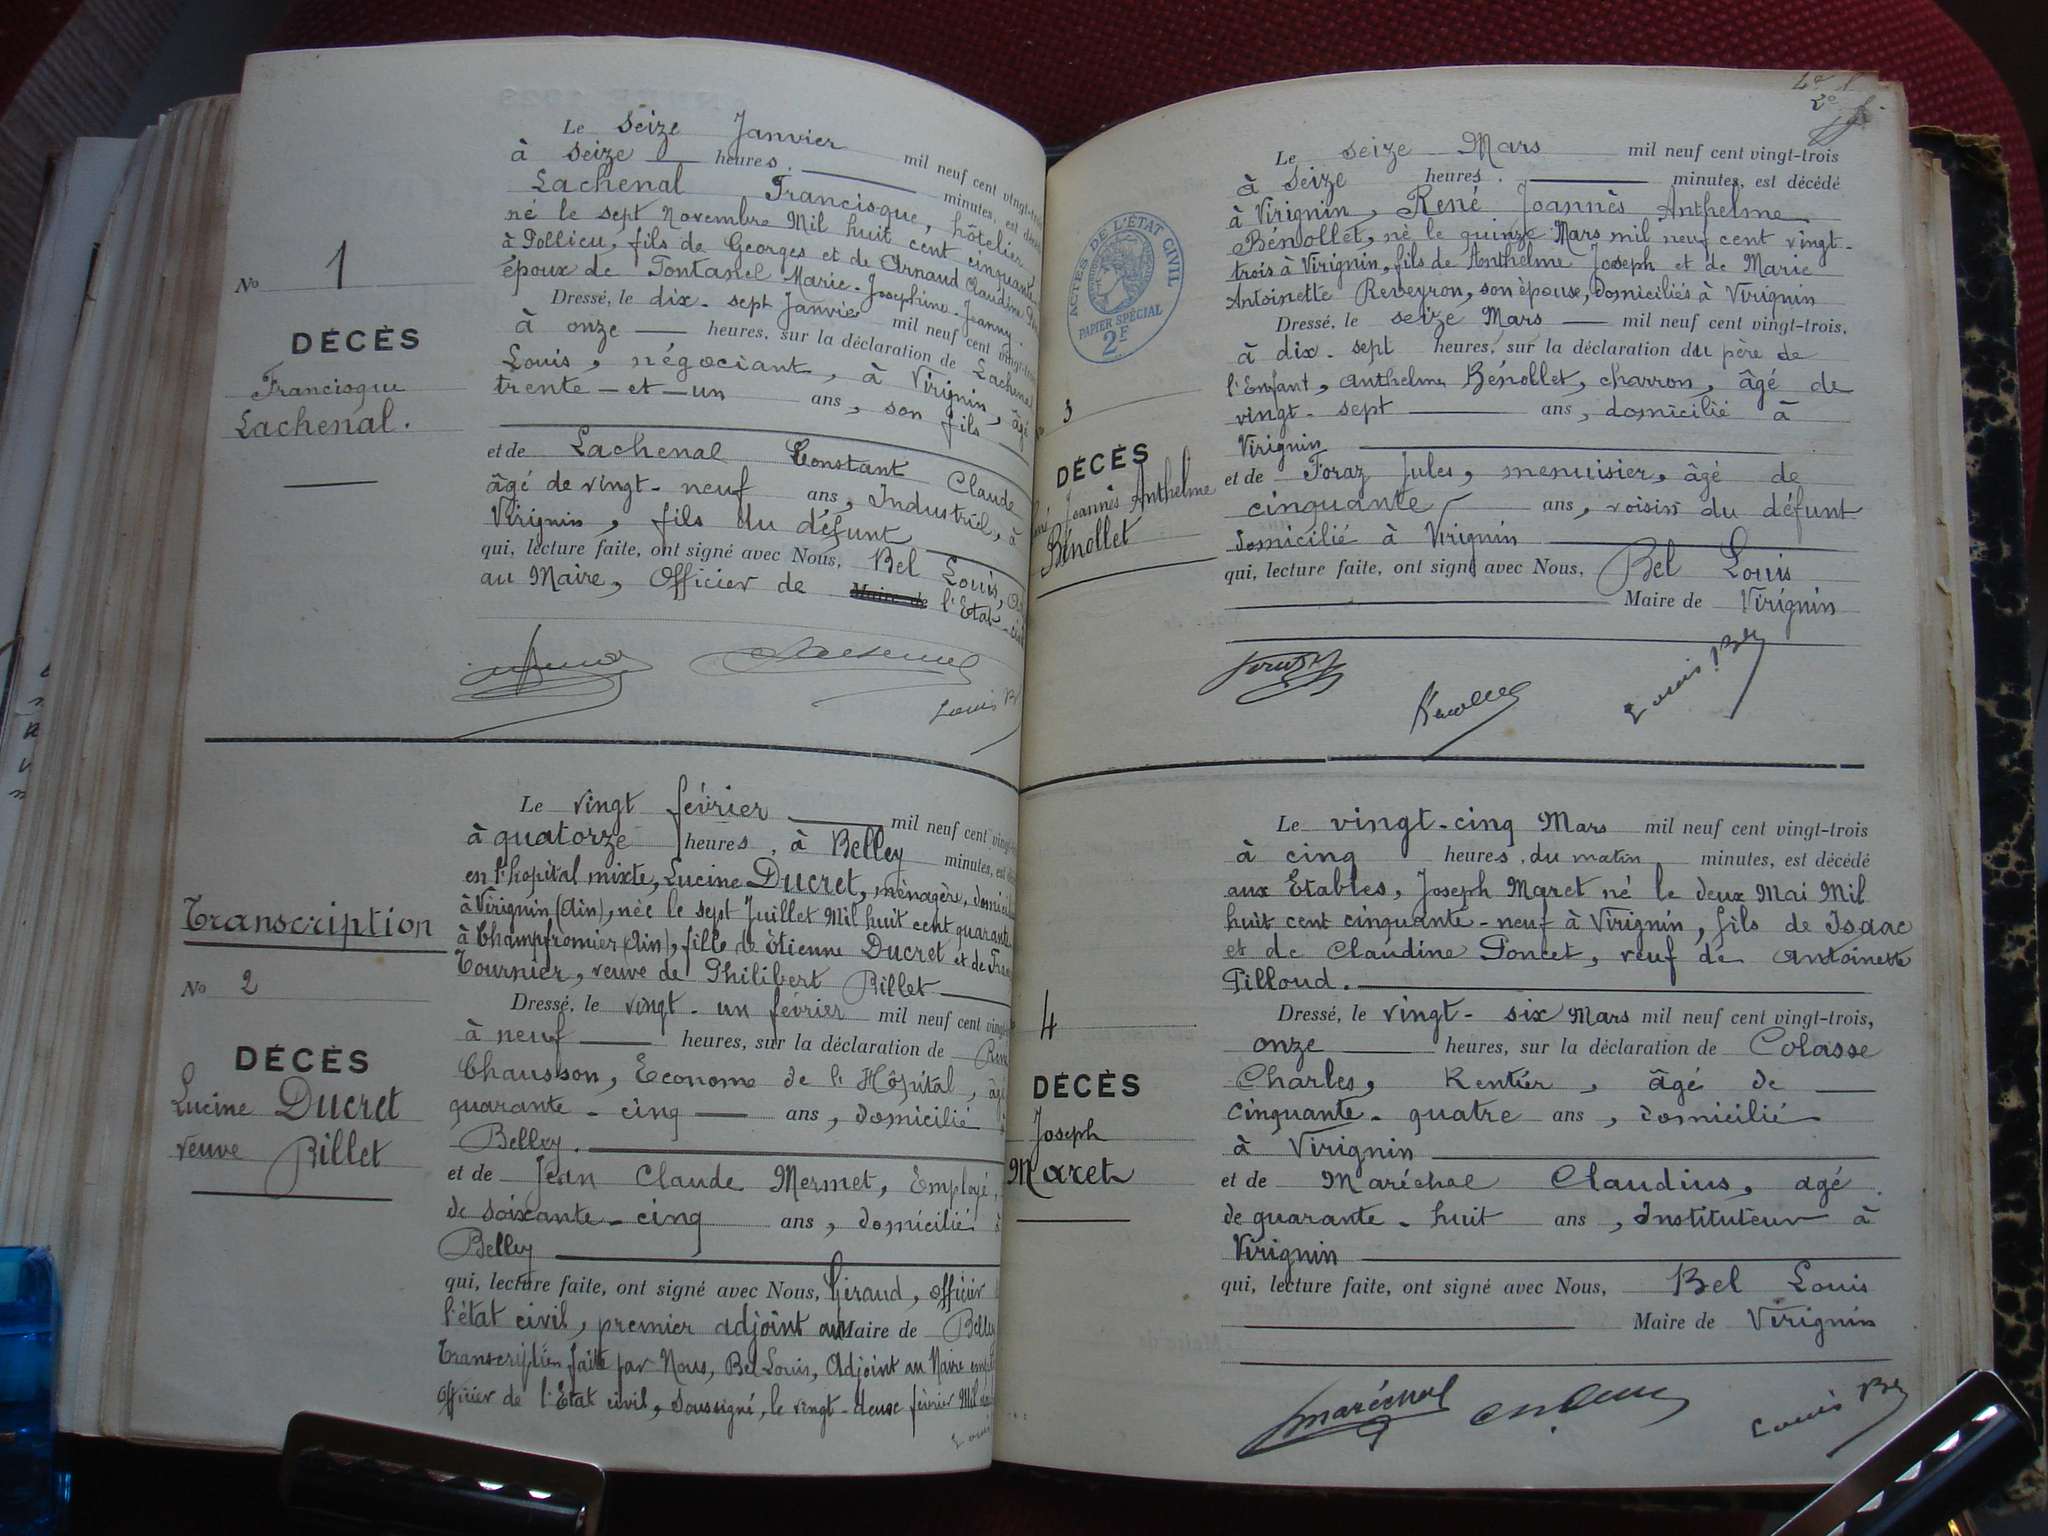 Le seize Janvier mil neuf cent vingt-
à seize heures, minutes, est
Lachenal Francisque, hôtelier,
né le sept Novembre Mil huit cent cinquante
à Pollieu, fils de Georges et de Arnaud Claudine
époux de Fontanel Marie-Josephine-Jeanny.
Dressé, le dix-sept Janvier mil neuf cent vingt-
à onze heures, sur la déclaration de Lachenal
Louis, négociant, à Virignin, âgé
trente-et-un ans, son fils
et de Lachenal Constant Claude
âgé de vingt-neuf ans, Industriel, à
Virignin, fils du défunt
qui, lecture faite, ont signé avec Nous, Bel Louis,
au Maire, Officier de Maire de l'Etat-civil
No 1
DÉCÈS
Francisque
Lachenal.
Louis B
Le vingt février mil neuf cent vingt-
à quatorze heures, à Belley minutes, est
en l'hopital mixte, Lucine Ducret, ménagère,
à Virignin (Ain), née le sept Juillet Mil huit cent quarante
à Champfromier (Ain), fille de Etienne Ducret et de
Tournier, veuve de Philibert Billet
Dressé, le vingt-un février mil neuf cent vingt-
à neuf heures, sur la déclaration de
Chausson, Econome de l'Hôpital, âgé
quarante-cinq ans, domicilié
Belley.
et de Jean Claude Mermet, Employé,
de soixante-cinq ans, domicilié à
Belley
qui, lecture faite, ont signé avec Nous, Giraud, officier
l'état civil, premier adjoint au Maire de Belley
Transcription faite par Nous, Bel Louis, Adjoint au Maire
Officier de l'Etat civil, soussigné, le vingt-deux février Mil
Louis
Transcription
No 2
DÉCÈS
Lucine Ducret
veuve Billet
2e
Le seize Mars mil neuf cent vingt-trois
à seize heures, minutes, est décédé
à Virignin, René Joannès Anthelme
Bénollet, né le quinze Mars mil neuf cent vingt-
trois à Virignin, fils de Anthelme Joseph et de Marie
Antoinette Reveyron, son épouse, domiciliés à Virignin
Dressé, le seize Mars mil neuf cent vingt-trois,
à dix-sept heures, sur la déclaration du père de
l'Enfant, Anthelme Bénollet, charron, âgé de
vingt-sept ans, domicilié à
Virignin
et de Foraz Jules, menuisier, âgé de
cinquante ans, voisin du défunt
domicilié à Virignin
qui, lecture faite, ont signé avec Nous, Bel Louis
Maire de Virignin
ACTES DE L'ÉTAT CIVIL
PAPIER SPÉCIAL
2F
3
DÉCÈS
Joannès Anthelme
Bénollet
Louis Bel
Le vingt-cinq Mars mil neuf cent vingt-trois
à cinq heures, du matin minutes, est décédé
aux Etables, Joseph Maret né le deux Mai Mil
huit cent cinquante-neuf à Virignin, fils de Isaac
et de Claudine Poncet, veuf de Antoinette
Pilloud.
Dressé, le vingt-six Mars mil neuf cent vingt-trois,
onze heures, sur la déclaration de Colasse
Charles, Rentier, âgé de
cinquante-quatre ans, domicilié
à Virignin
et de Maréchal Claudius, agé
de quarante-huit ans, Instituteur à
Virignin
qui, lecture faite, ont signé avec Nous, Bel Louis
Maire de Virignin
4
DÉCÈS
Joseph
Maret
Maréchal
Louis Bel